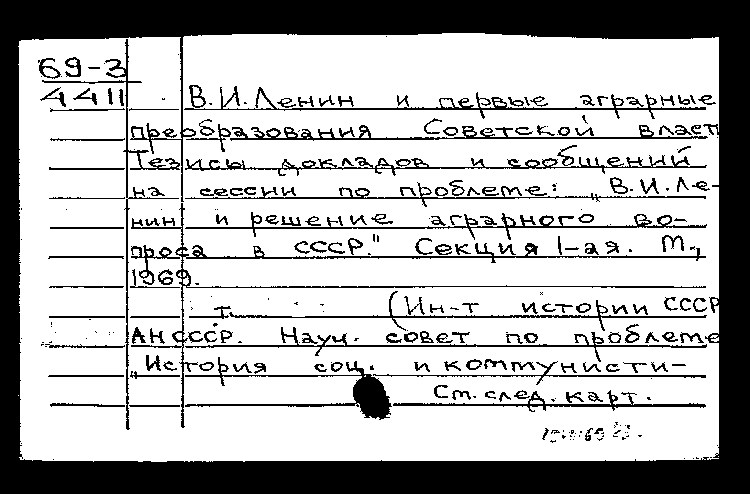 69-3
4411
В.И.Ленин и первые аграрные
преобразования Советской власт
Тезисы докладов и сообщений
на сессии по проблеме: „В.И.Ле-
нин и решение аграрного во-
проса в СССР." Секция I-ая. М.,
1969.
т. (Ин-т истории СССР
АН СССР. Науч. совет по проблеме
„История соц. и коммунисти-
См. след. карт.